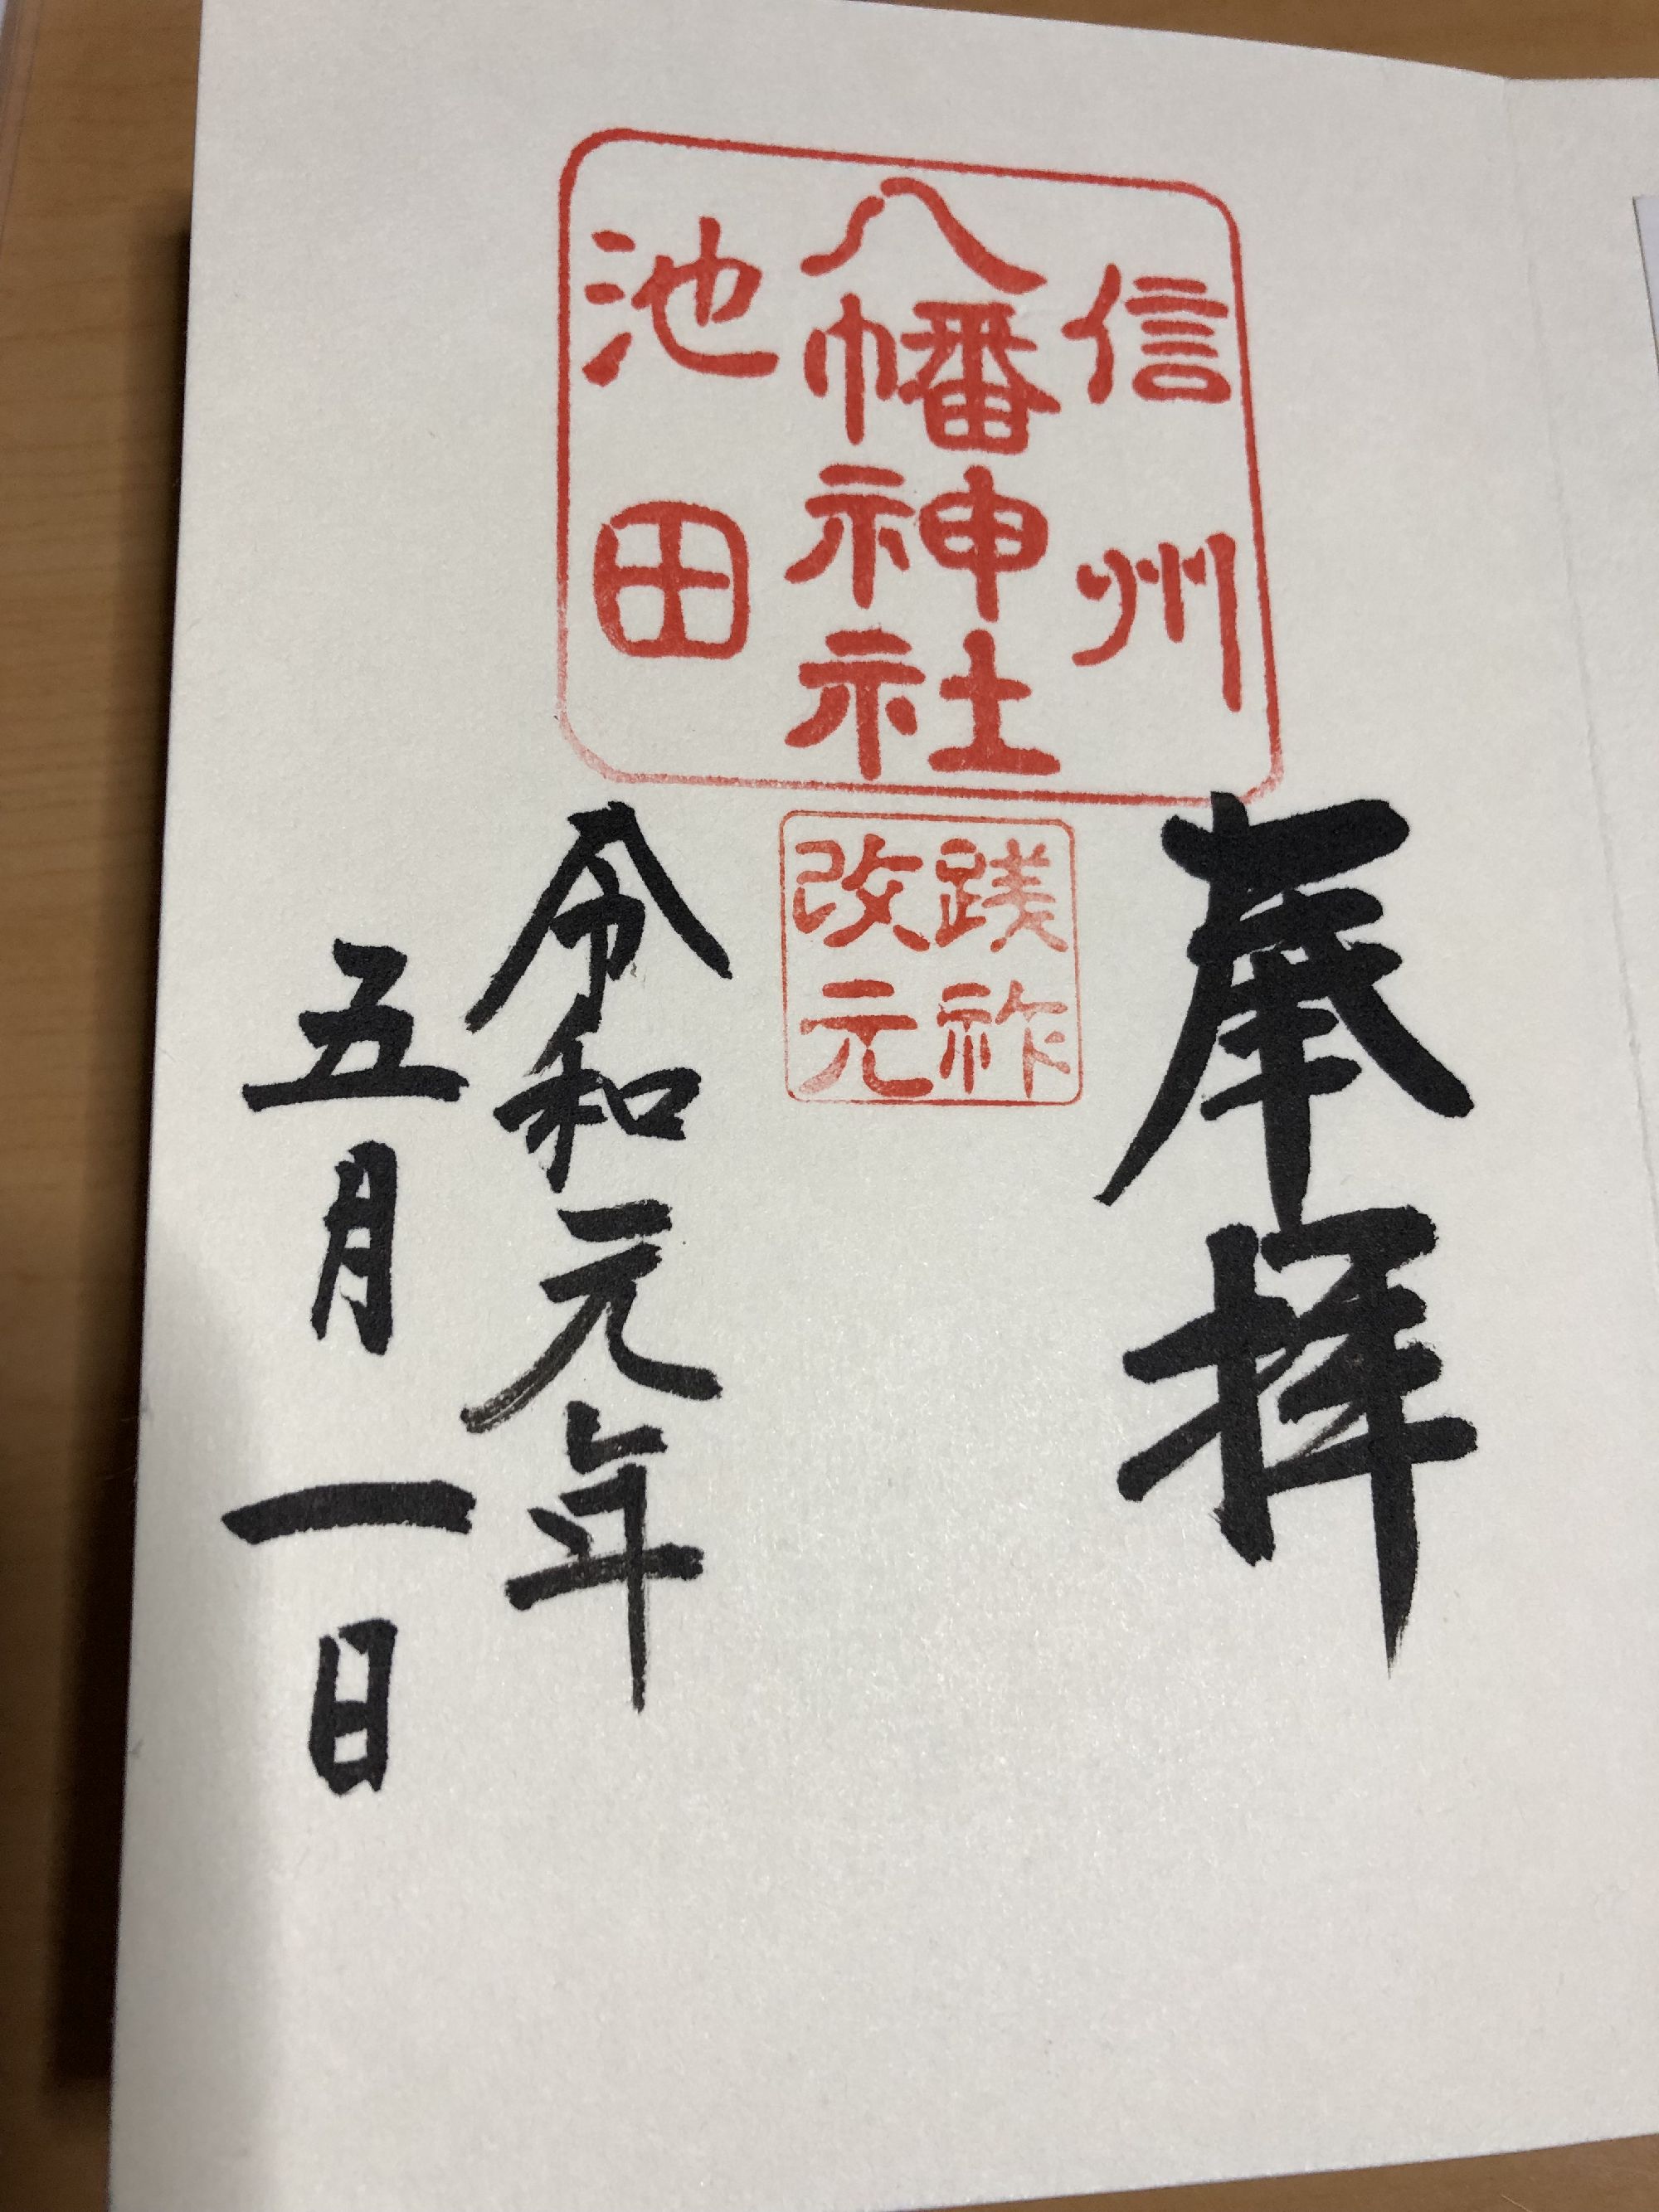 信州
八幡神社
池田
践祚
改元
奉拝
令和元年
五月一日